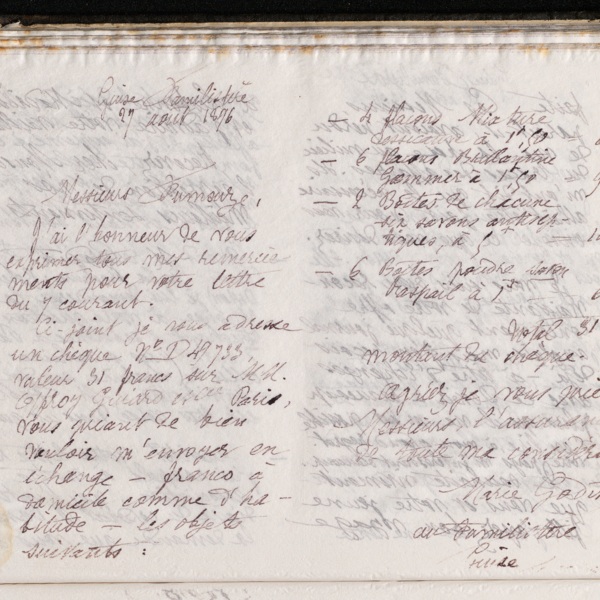 Guise Familistère
27 août 1896
Messieurs Fumouze,
J'ai l'honneur de vous
exprimer tous mes remercie
ments pour votre lettre
du 7 courant.
Ci-joint je vous adresse
un chèque N° D 41733,
valeur 31 francs sur M.M.
Offroy Guiard et Cie Paris,
vous priant de bien
vouloir m'envoyer en
échange – franco à
domicile comme d'ha-
bitude – les objets
suivants :
4 flacons
à 1f,50 =
– 6 flacons Brillantine
à 1f,50 =
– 2 Boîtes de chacune
six savons antisep-
tiques, à 5f
– 6 Boîtes poudre
Raspail à 1f
Total 31
montant du chèque.
Agréez je vous prie
Messieurs l'assuran
de toute ma considéra
Marie Godin
au Familistère
Guise